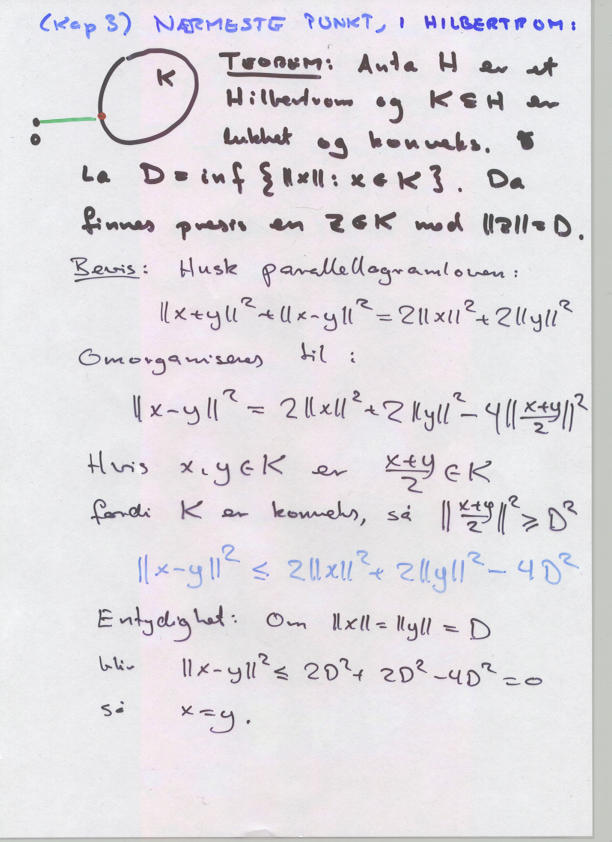 (Kap 3) NÆRMESTE PUNKT, I HILBERTROM:
K
TEOREM: Anta H er et
Hilbertrom og K ⊆ H er
lukket og konveks.
0
La D = inf {||x|| : x ∈ K}. Da
finnes presis en z ∈ K med ||z|| = D.
Bevis: Husk parallellogramloven:
||x+y||² + ||x-y||² = 2||x||² + 2||y||²
Omorganiseres til :
||x-y||² = 2||x||² + 2||y||² - 4||(x+y)/2||²
Hvis x, y ∈ K er (x+y)/2 ∈ K
fordi K er konveks, så ||(x+y)/2||² ≥ D²
||x-y||² ≤ 2||x||² + 2||y||² - 4D²
Entydighet: Om ||x|| = ||y|| = D
blir ||x-y||² ≤ 2D² + 2D² - 4D² = 0
så x = y.